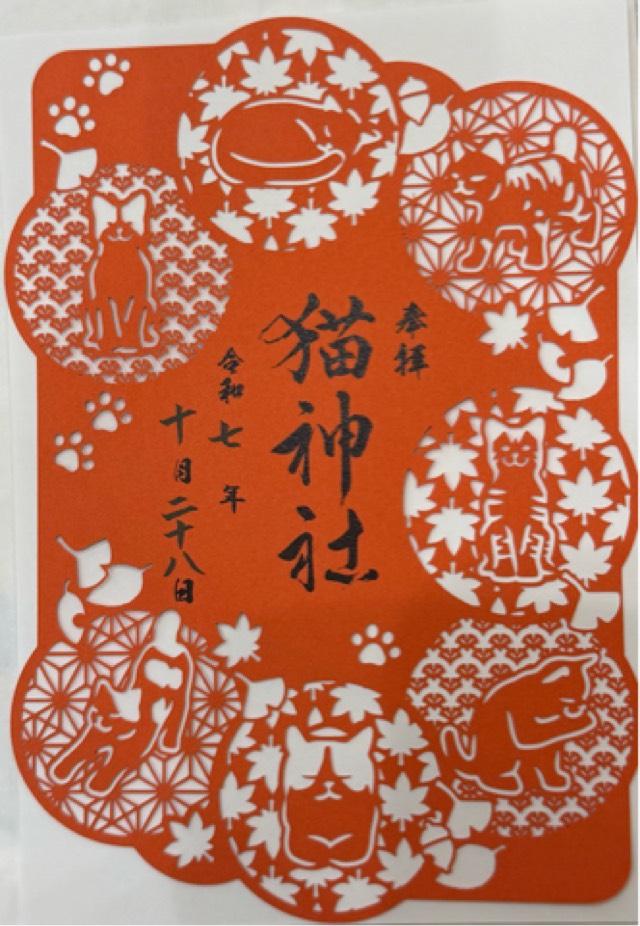 奉拝
猫神社
令和七年
十月二十八日